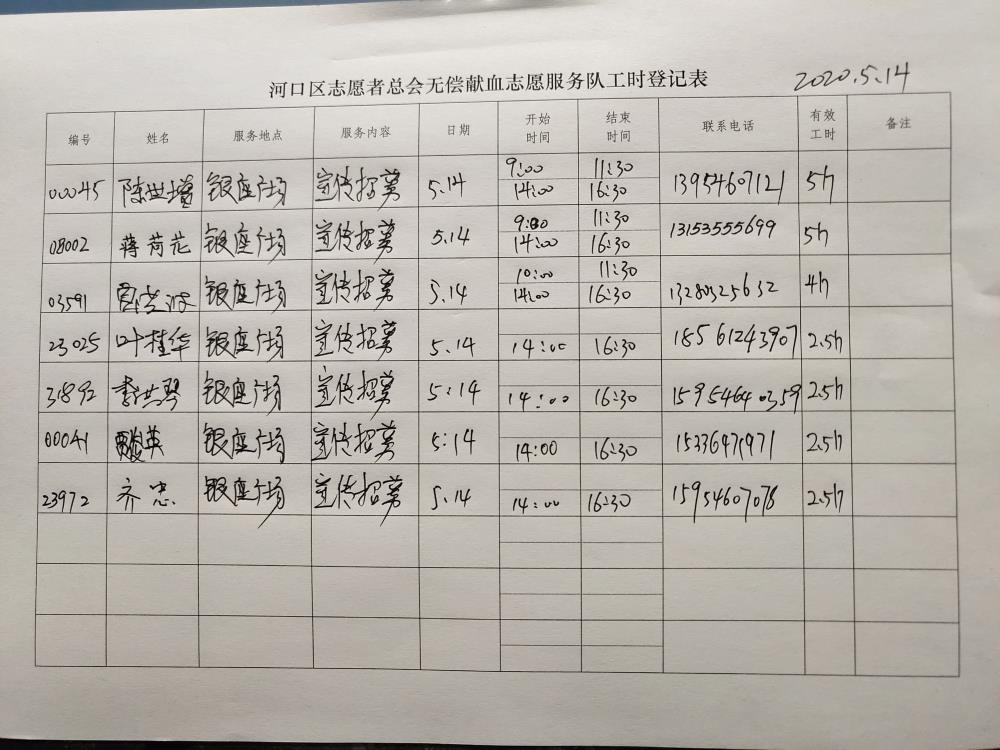 河口区志愿者总会无偿献血志愿服务队工时登记表 2020.5.14
编号 姓名 服务地点 服务内容 日期 开始时间 结束时间 联系电话 有效工时 备注
00045 陈世增 银座广场 宣传招募 5.14 9:00 11:30 13954607121 5h
14:00 16:30
08002 蒋荷花 银座广场 宣传招募 5.14 9:00 11:30 13153555699 5h
14:00 16:30
03591 银座广场 宣传招募 5.14 10:00 11:30 13280325632 4h
14:00 16:30
23025 叶桂华 银座广场 宣传招募 5.14 14:00 16:30 18561243907 2.5h
31892 李洪琴 银座广场 宣传招募 5:14 14:00 16:30 15954640359 2.5h
00041 英 银座广场 宣传招募 5:14 14:00 16:30 15336471971 2.5h
23972 齐忠 银座广场 宣传招募 5.14 14:00 16:30 15954607078 2.5h